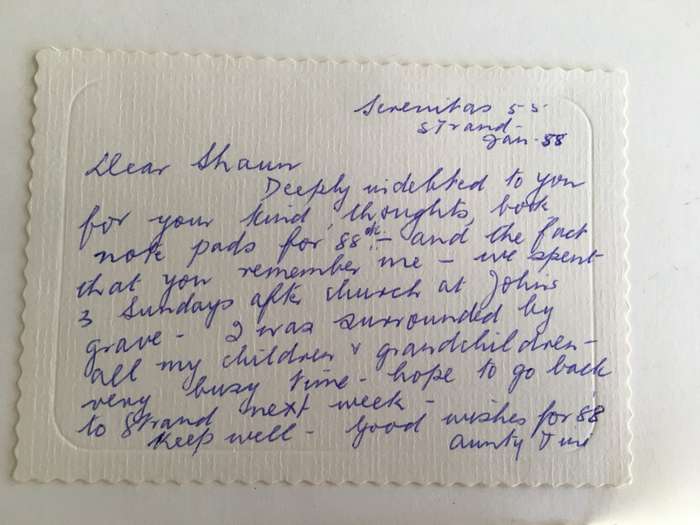 Serenitas 55
Strand-
Jan. 88
Dear Shaun
Deeply indebted to you
for your kind, thoughts, book
note pads for 88 - and the fact
that you remember me - we spent
3 Sundays after church at Johns
grave - I was surrounded by
all my children & grandchildren -
very busy time - hope to go back
to Strand next week -
Keep well - Good wishes for 88
Aunty